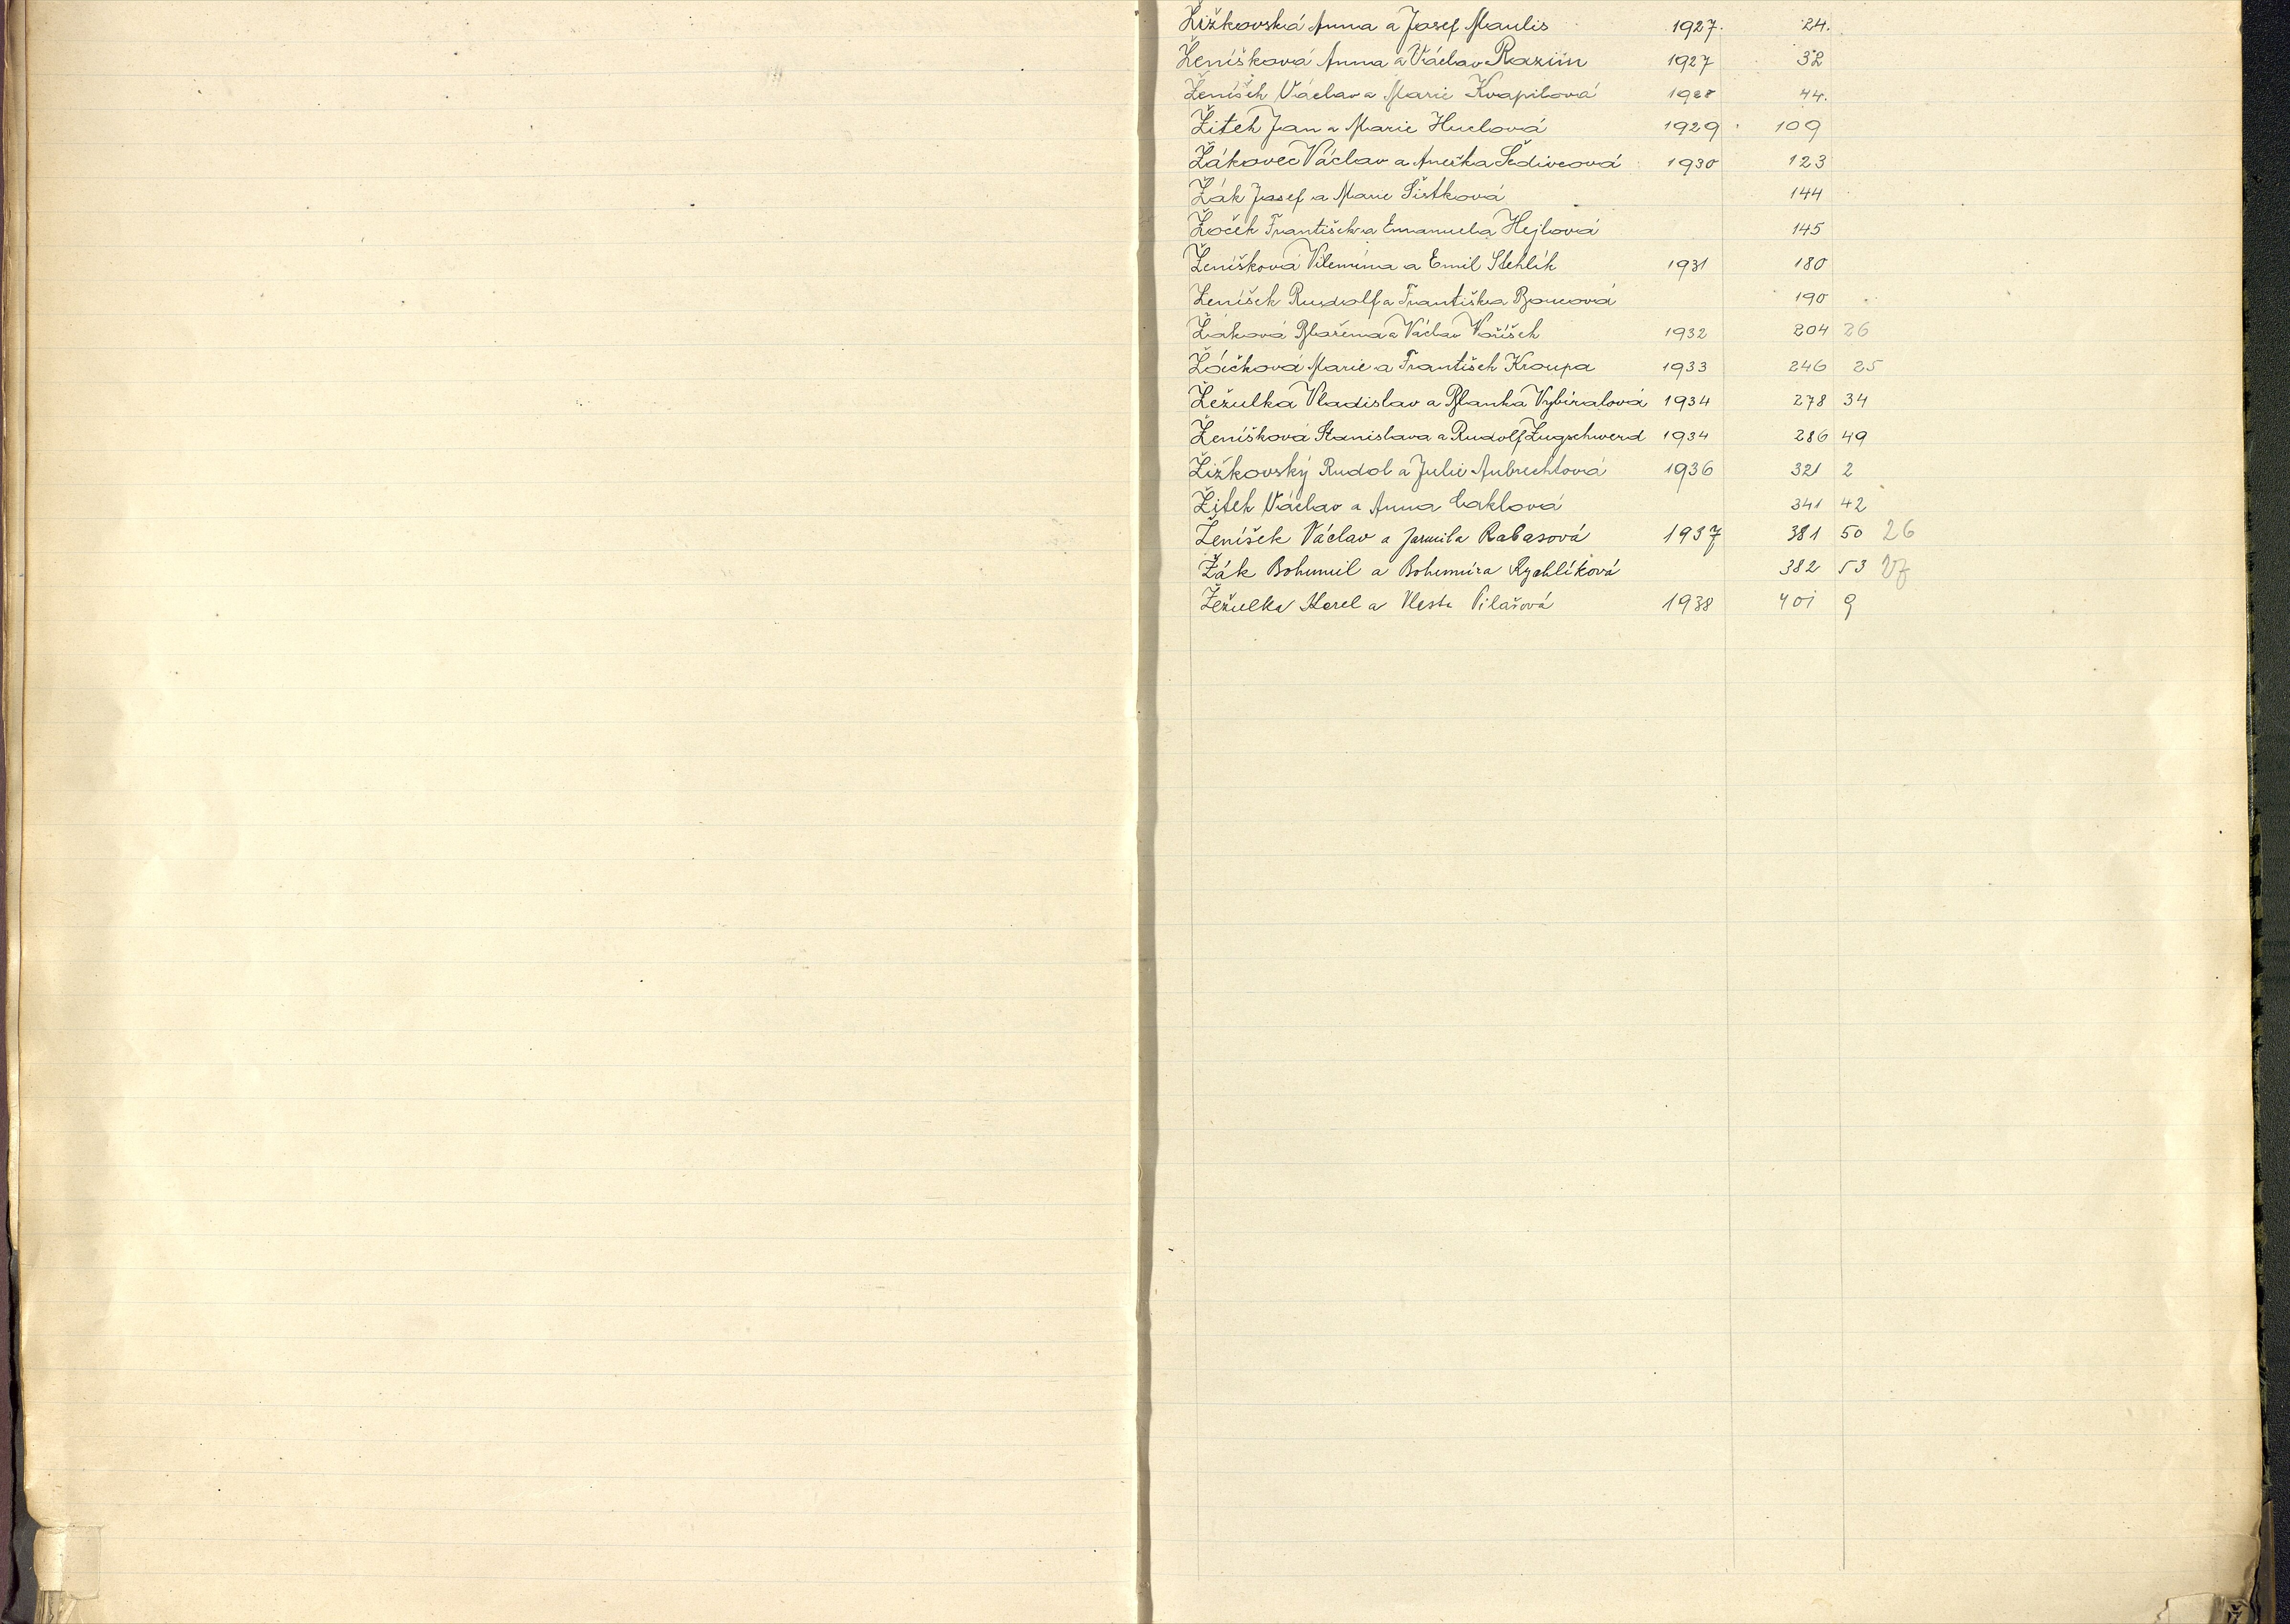 Žižkovská Anna a Josef Maulis 1927. 24.
Ženíšková Anna a Václav Razim 1927 32
Ženíšek Václav a Marie Kvapilová 1928 44.
Žitek Jan a Marie Huclová 1929 109
Žákovec Václav a Anežka Šedivcová 1930 123
Žák Josef a Marie Šístková 144
Žoček František a Emanuela Hejlová 145
Ženíšková Vilemína a Emil Stehlík 1931 180
Ženíšek Rudolf a Františka Boucová 190
Žáková Blažena a Václav Voříšek 1932 204 26
Žáčková Marie a František Kroupa 1933 246 25
Žežulka Vladislav a Blanka Vybíralová 1934 278 34
Ženíšková Stanislava a Rudolf Zugschwerd 1934 286 49
Žižkovský Rudol a Julie Aubrechtová 1936 321 2
Žitek Václav a Anna Caklová 341 42
Ženíšek Václav a Jarmila Rabasová 1937 381 50 26
Žák Bohumil a Bohumíra Rychlíková 382 53 27
Žežulka Karel a Vlasta Pilařová 1938 401 9